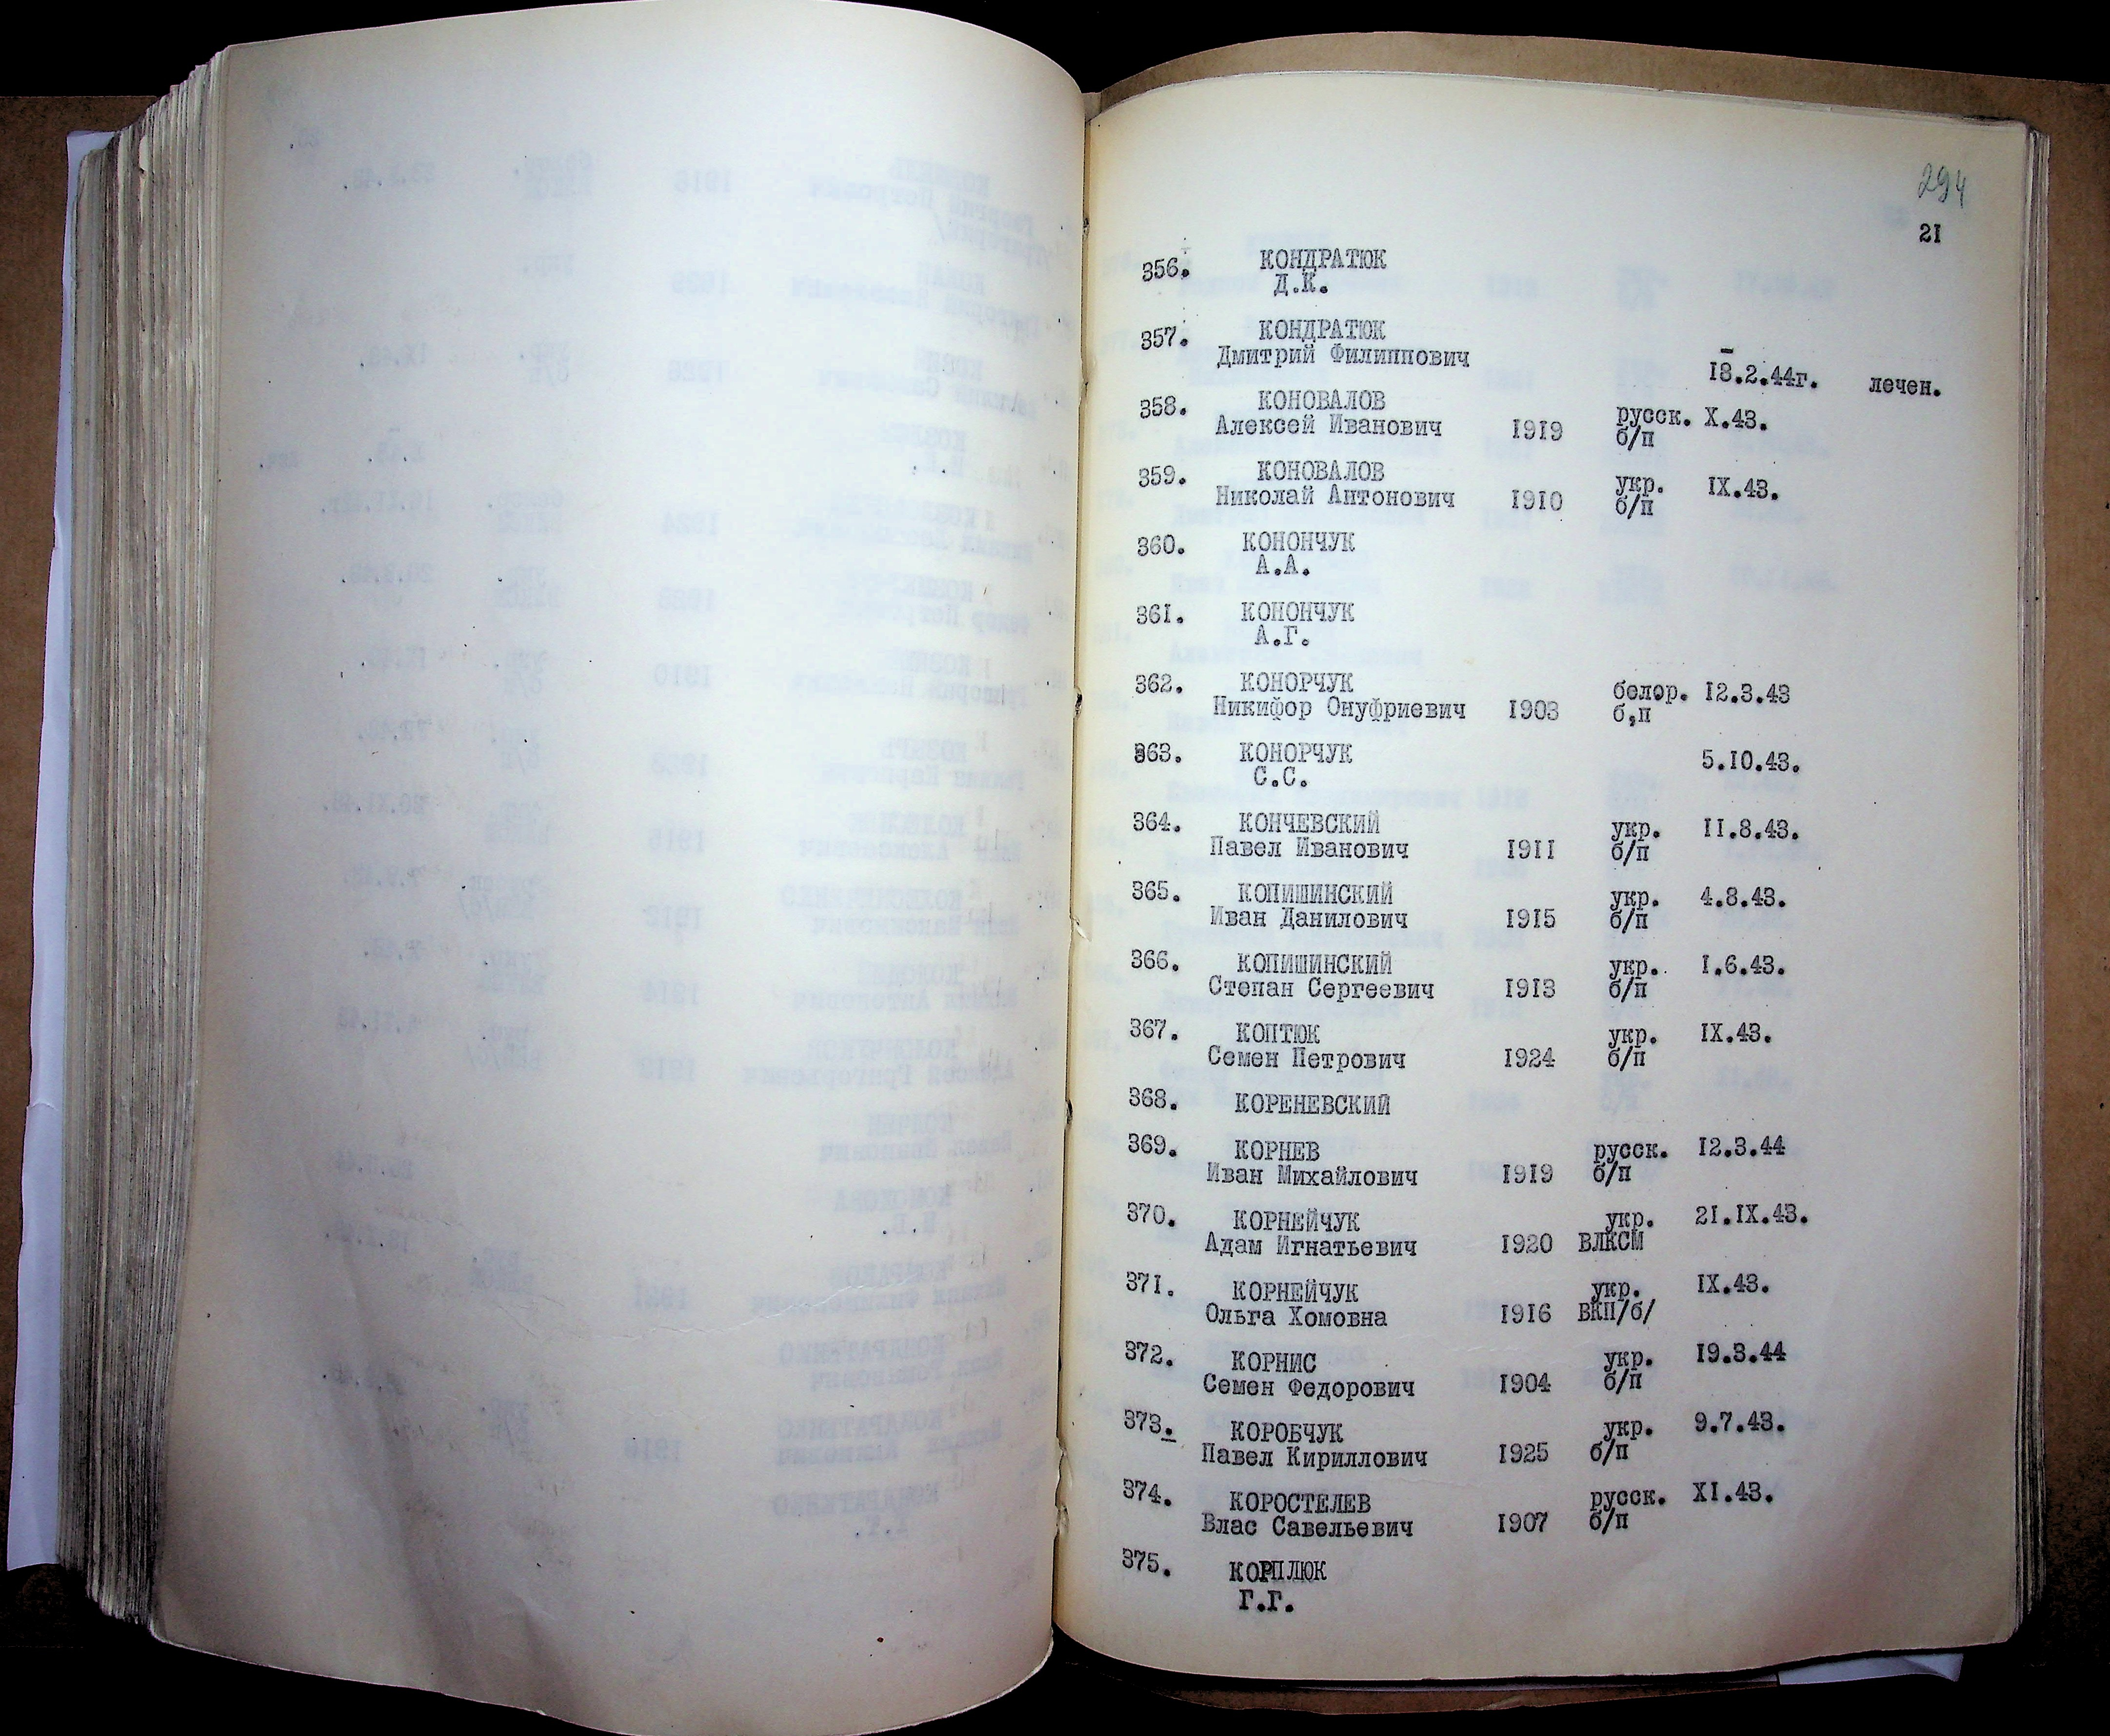 294
21
356. КОНДРАТЮК
Д.К.
357. КОНДРАТЮК
Дмитрий Филиппович
18.2.44г. лечен.
358. КОНОВАЛОВ русск. X.43.
Алексей Иванович 1919 б/п
359. КОНОВАЛОВ укр. IX.43.
Николай Антонович 1910 б/п
360. КОНОНЧУК
А.А.
361. КОНОНЧУК
А.Г.
362. КОНОРЧУК белор. 12.3.43
Никифор Онуфриевич 1903 б,п
363. КОНОРЧУК 5.10.43.
С.С.
364. КОНЧЕВСКИЙ укр. 11.8.43.
Павел Иванович 1911 б/п
365. КОПИШИНСКИЙ укр. 4.8.43.
Иван Данилович 1915 б/п
366. КОПИШИНСКИЙ укр. 1.6.43.
Степан Сергеевич 1913 б/п
367. КОПТЮК укр. IX.43.
Семен Петрович 1924 б/п
368. КОРЕНЕВСКИЙ
369. КОРНЕВ русск. 12.3.44
Иван Михайлович 1919 б/п
370. КОРНЕЙЧУК укр. 21.IX.43.
Адам Игнатьевич 1920 ВЛКСМ
371. КОРНЕЙЧУК укр. IX.43.
Ольга Хомовна 1916 ВКП/б/
372. КОРНИС укр. 19.3.44
Семен Федорович 1904 б/п
373. КОРОБЧУК укр. 9.7.43.
Павел Кириллович 1925 б/п
374. КОРОСТЕЛЕВ русск. XI.43.
Влас Савельевич 1907 б/п
375. КОРПЛЮК
Г.Г.